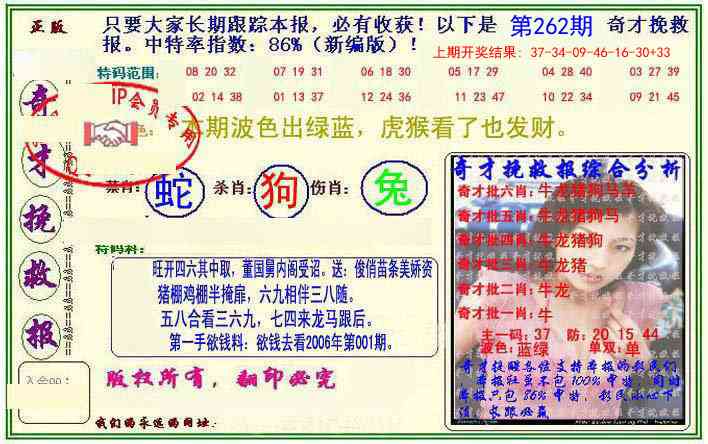 正版
只要大家长期跟踪本报，必有收获！以下是 第262期 奇才挽救
报。中特率指数：86%（新编版）！
上期开奖结果：37-34-09-46-16-30+33
特码范围：
08 20 32 07 19 31 06 18 30 05 17 29 04 28 40 03 27 39
02 14 38 01 13 37 12 24 36 11 23 47 10 22 34 09 21 45
IP会员专用
色：本期波色出绿蓝，虎猴看了也发财。
奇才挽救报
禁肖：蛇 杀肖：狗 伤肖：兔
特码料：
旺开四六其中取，董国舅内阁受诏。送：俊俏苗条美娇资
猪棚鸡棚半掩扉，六九相伴三八随。
五八合看三六九，七四来龙马跟后。
第一手欲钱料：欲钱去看2006年第001期。
版权所有，翻印必究
我们的永远的网址：
奇才挽救报综合分析
奇才批六肖：牛龙猪狗马羊
奇才批五肖：牛龙猪狗马
奇才批四肖：牛龙猪狗
奇才批三肖：牛龙猪
奇才批二肖：牛龙
奇才批一肖：牛
主一码：37 防：20 15 44
波色：蓝绿 单双：单